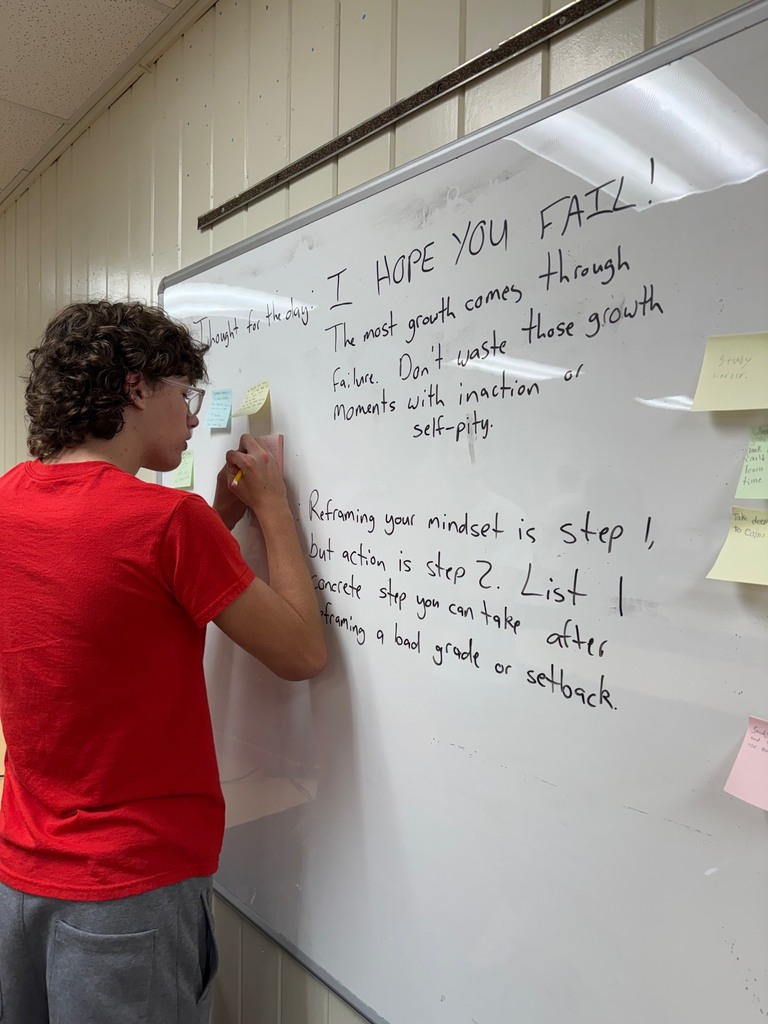 Thought for the day:
I HOPE YOU FAIL!
The most growth comes through
failure. Don't waste those growth
moments with inaction or
self-pity.
Reframing your mindset is step 1,
but action is step 2. List 1
concrete step you can take after
reframing a bad grade or setback.
Study
Take deep
to calm